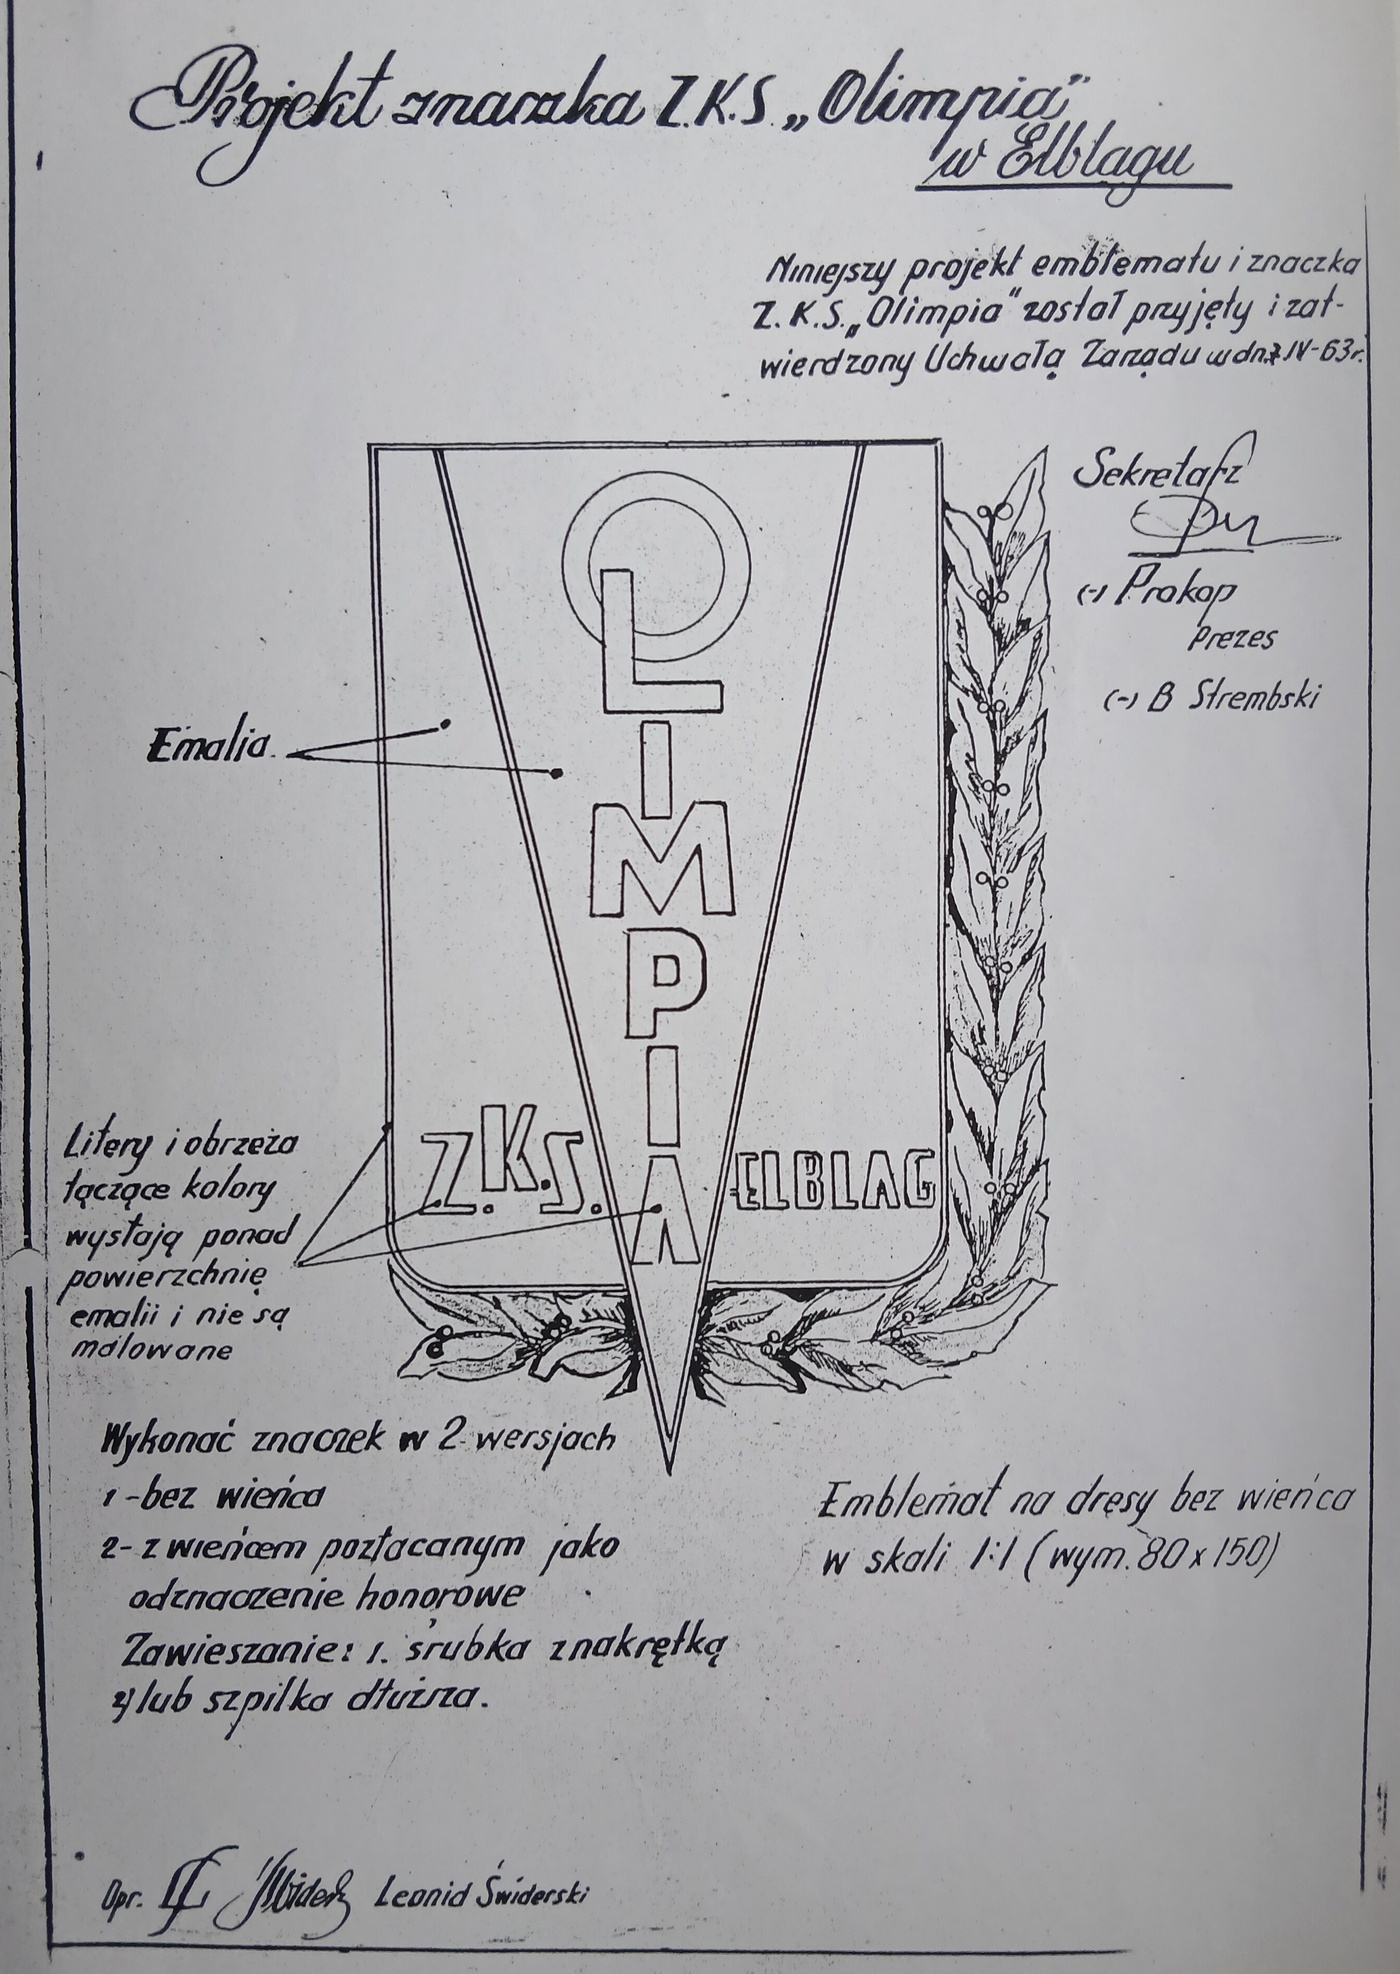 Projekt znaczka Z.K.S. „Olimpia”
w Elblagu
Niniejszy projekt emblematu i znaczka
Z.K.S. „Olimpia” został przyjęty i zat-
wierdzony Uchwałą Zarządu w dn. 7 IV-63r.
Sekretarz
(-) Prokop
Prezes
(-) B Strembski
OLIMPIA
Emalia.
Z.K.S.
ELBLAG
Litery i obrzeża
łączące kolory
wystają ponad
powierzchnię
emalii i nie są
malowane
Wykonać znaczek w 2 wersjach
1 -bez wieńca
2- z wieńcem pozłacanym jako
odznaczenie honorowe
Zawieszanie: 1. śrubka z nakrętką
2) lub szpilka dłuższa.
Emblemat na dresy bez wieńca
w skali 1:1 (wym. 80 x 150)
Opr. Leonid Świderski